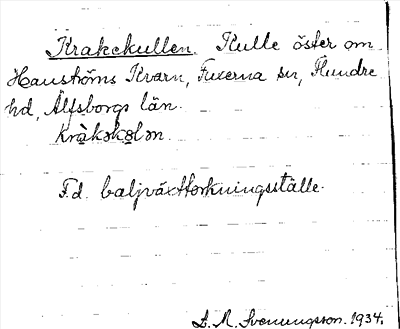 Krakekullen. Kulle öster om
Hanströms Kvarn, Fuxerna sn, Flundre
hd, Älfsborgs län.
kràkəkꞷ̲lən.
F.d. baljväxttorkningsställe.
L. M. Svenungsson. 1934.